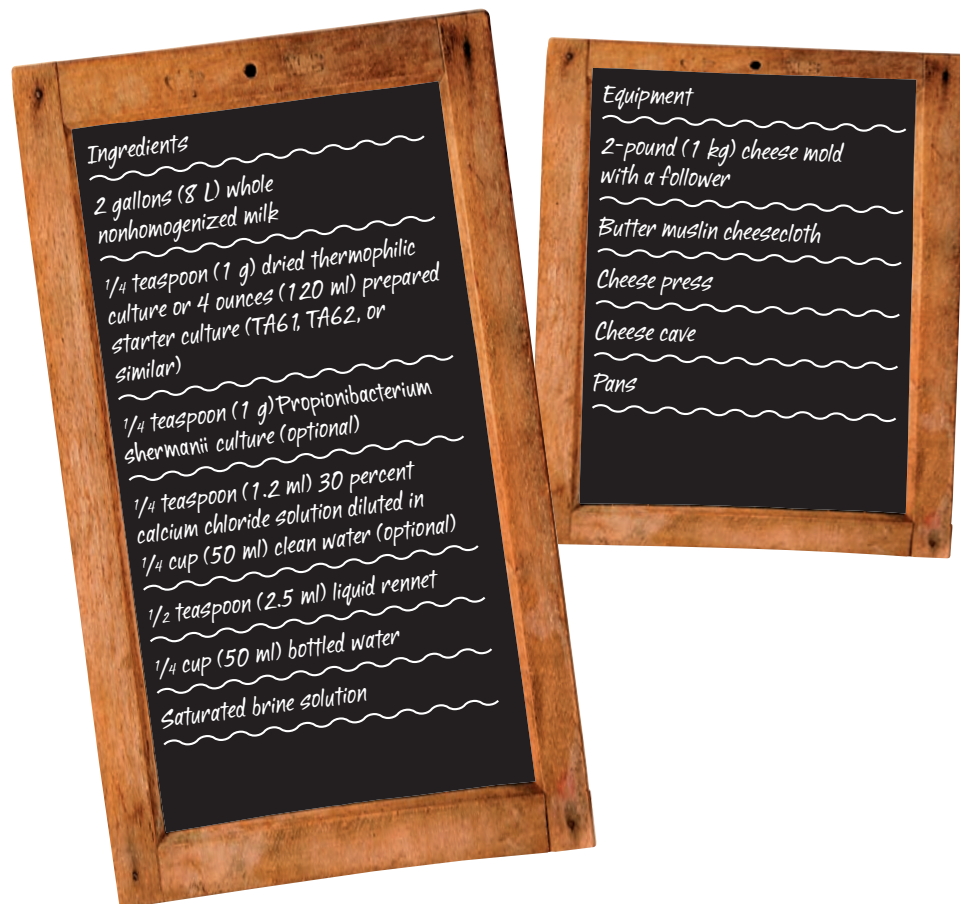 Ingredients
2 gallons (8 L) whole
nonhomogenized milk
1/4 teaspoon (1 g) dried thermophilic
culture or 4 ounces (120 ml) prepared
starter culture (TA61, TA62, or
similar)
1/4 teaspoon (1 g) Propionibacterium
shermanii culture (optional)
1/4 teaspoon (1.2 ml) 30 percent
calcium chloride solution diluted in
1/4 cup (50 ml) clean water (optional)
1/2 teaspoon (2.5 ml) liquid rennet
1/4 cup (50 ml) bottled water
Saturated brine solution
Equipment
2-pound (1 kg) cheese mold
with a follower
Butter muslin cheesecloth
Cheese press
Cheese cave
Pans